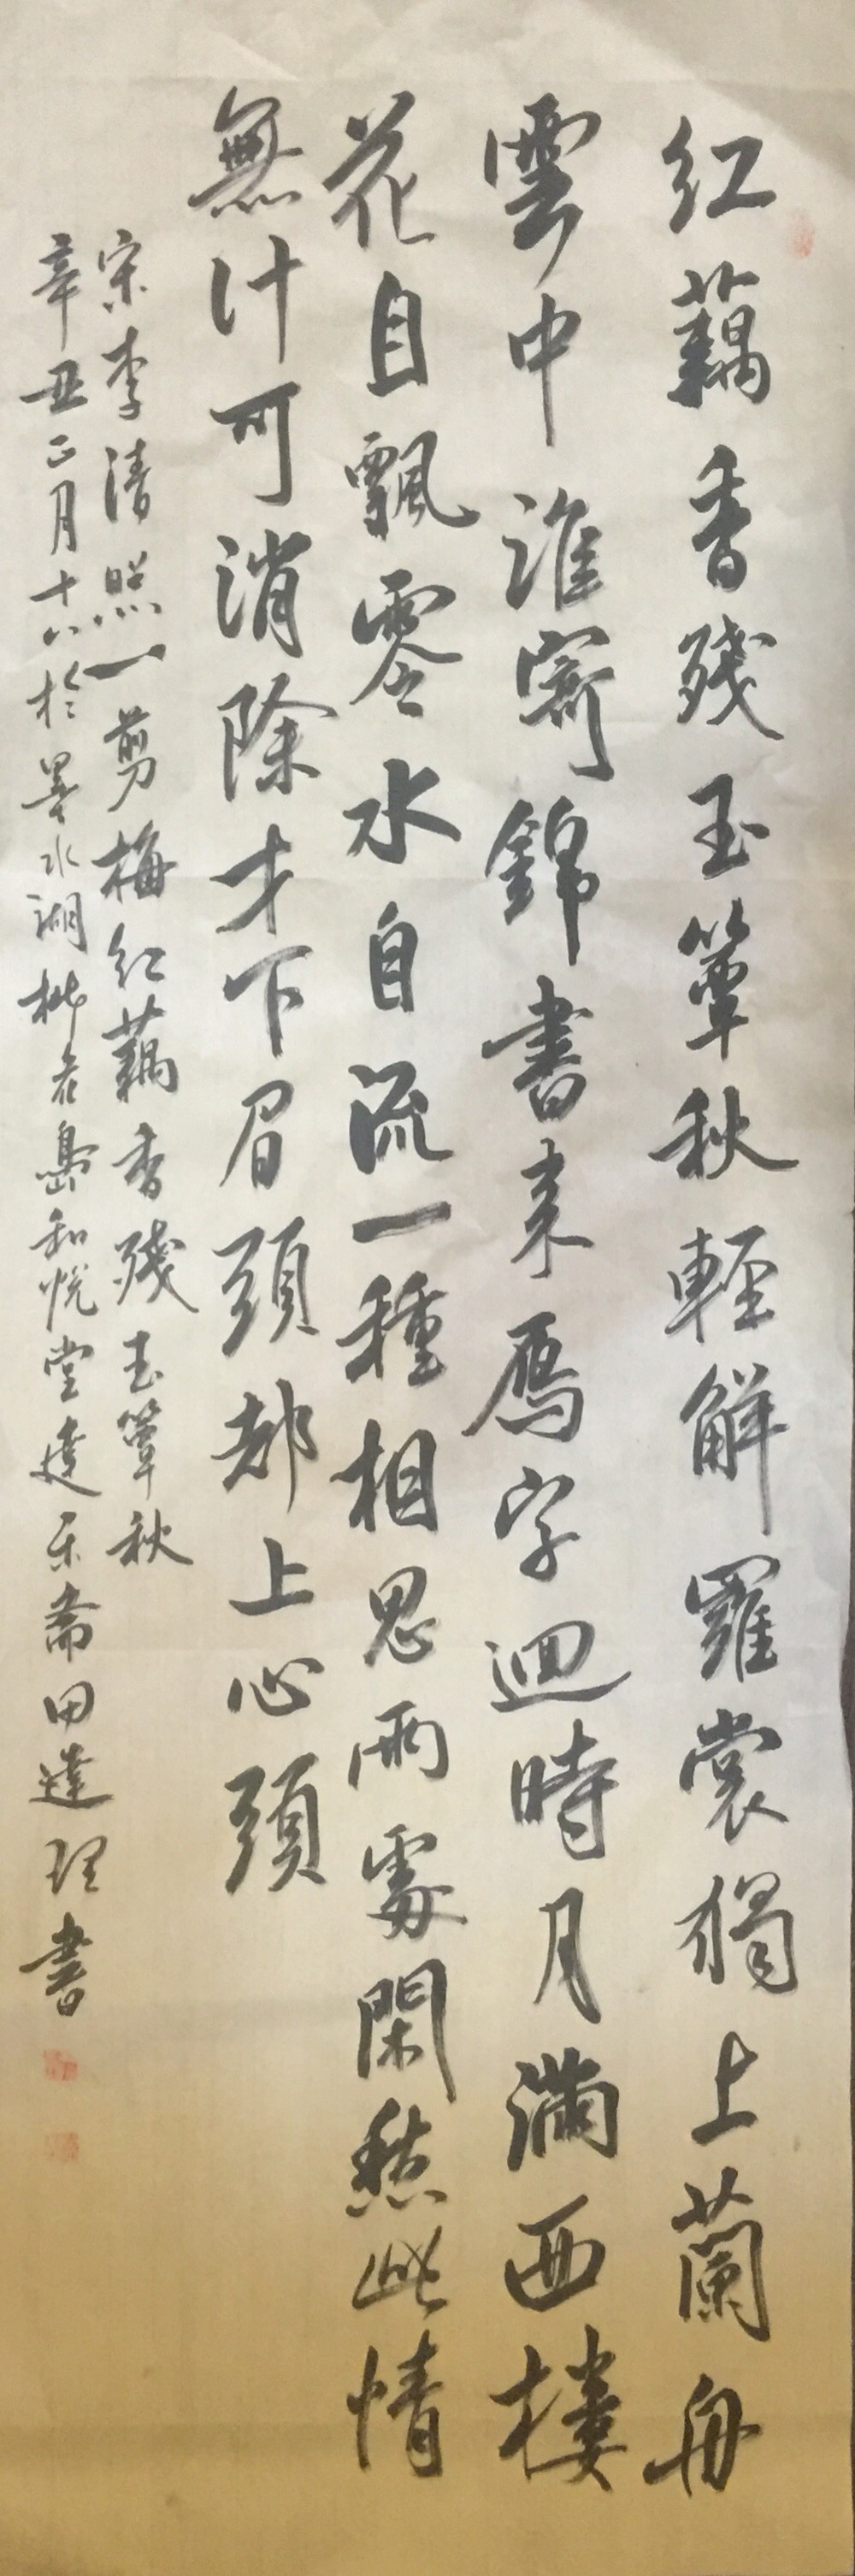 红藕香残玉簟秋輕解羅裳獨上蘭舟
雲中誰寄錦書来鴈字迴時月滿西樓
花自飄零水自流一種相思兩處閑愁此情
無计可消除才下眉頭却上心頭
宋李清照一剪梅红藕香残玉簟秋
辛丑正月十八於墨水湖畔老島和悦堂達乐斋田達理書